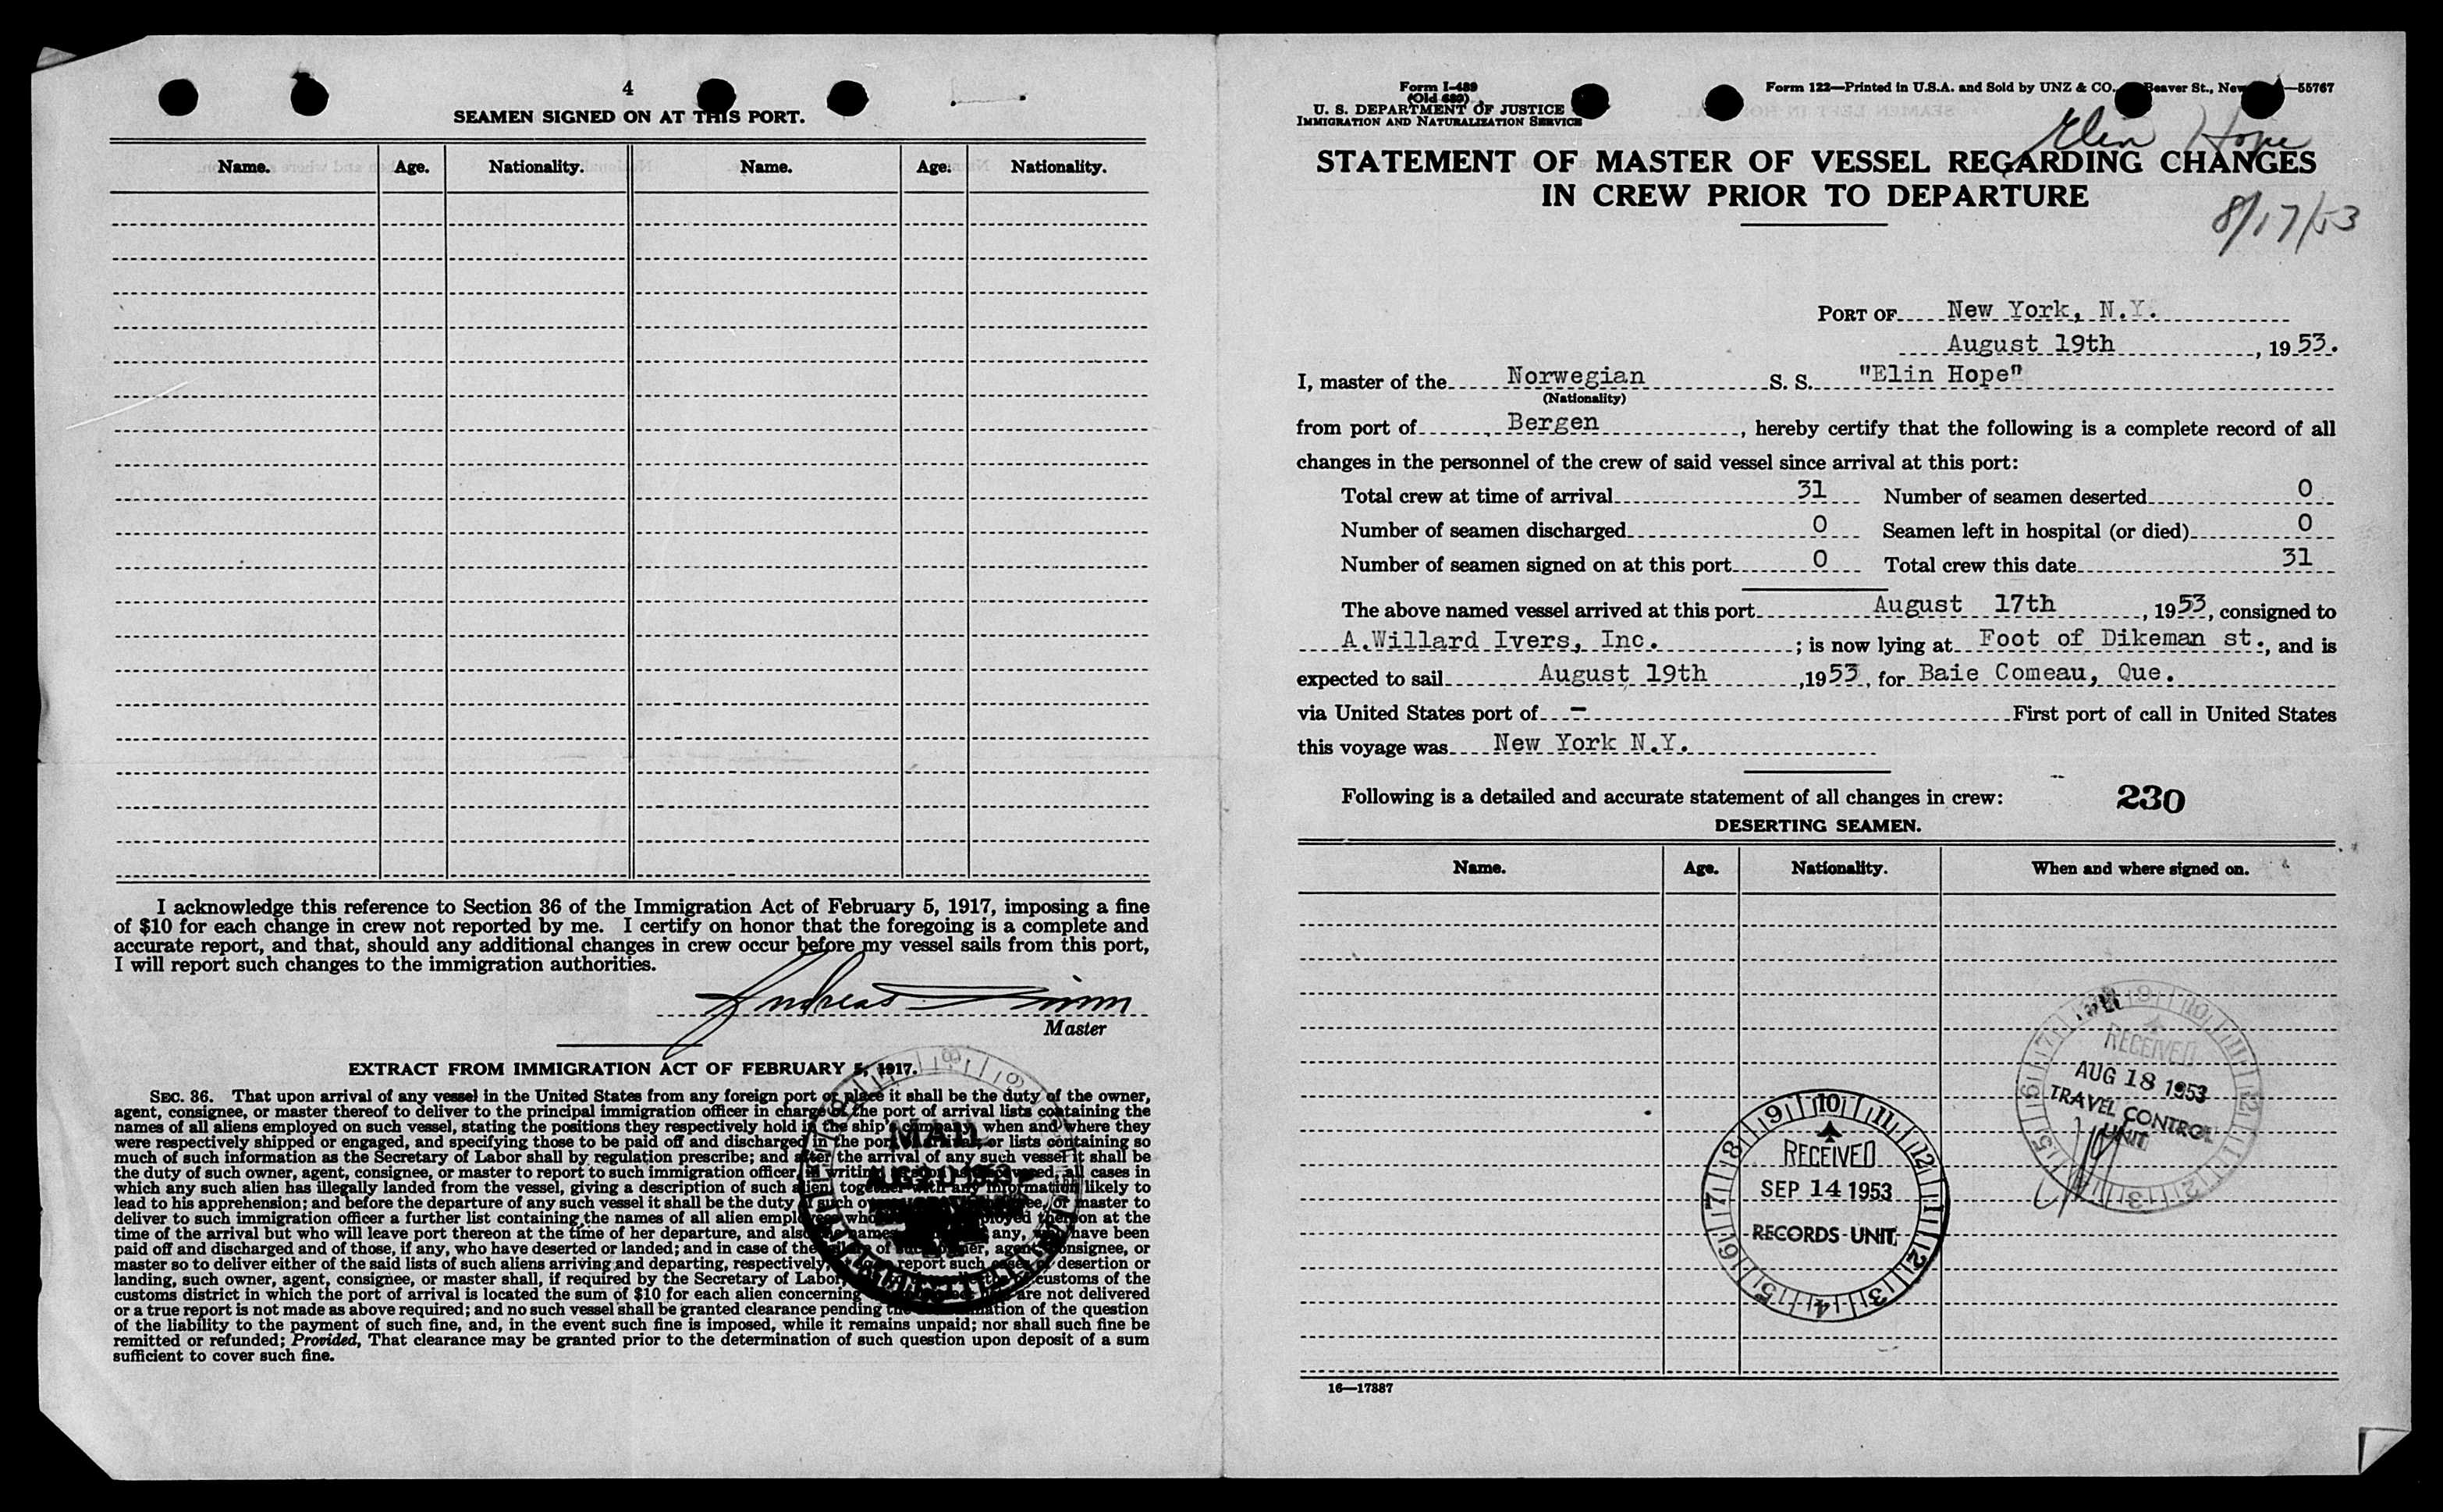 4
SEAMEN SIGNED ON AT THIS PORT.
Name. Age. Nationality. Name. Age. Nationality.
I acknowledge this reference to Section 36 of the Immigration Act of February 5, 1917, imposing a fine
of $10 for each change in crew not reported by me. I certify on honor that the foregoing is a complete and
accurate report, and that, should any additional changes in crew occur before my vessel sails from this port,
I will report such changes to the immigration authorities.
Andreas
Master
EXTRACT FROM IMMIGRATION ACT OF FEBRUARY 5, 1917.
SEC. 36. That upon arrival of any vessel in the United States from any foreign port or place it shall be the duty of the owner,
agent, consignee, or master thereof to deliver to the principal immigration officer in charge of the port of arrival lists containing the
names of all aliens employed on such vessel, stating the positions they respectively hold in the ship's company, when and where they
were respectively shipped or engaged, and specifying those to be paid off and discharged in the port of arrival; or lists containing so
much of such information as the Secretary of Labor shall by regulation prescribe; and after the arrival of any such vessel it shall be
the duty of such owner, agent, consignee, or master to report to such immigration officer, in writing, as soon as discovered, all cases in
which any such alien has illegally landed from the vessel, giving a description of such alien, together with any information likely to
lead to his apprehension; and before the departure of any such vessel it shall be the duty of such or master to
deliver to such immigration officer a further list containing the names of all alien employees who thereon at the
time of the arrival but who will leave port thereon at the time of her departure, and also the names any, who have been
paid off and discharged and of those, if any, who have deserted or landed; and in case of the of such agent, consignee, or
master so to deliver either of the said lists of such aliens arriving and departing, respectively, report such cases of desertion or
landing, such owner, agent, consignee, or master shall, if required by the Secretary of Labor, customs of the
customs district in which the port of arrival is located the sum of $10 for each alien concerning are not delivered
or a true report is not made as above required; and no such vessel shall be granted clearance pending the of the question
of the liability to the payment of such fine, and, in the event such fine is imposed, while it remains unpaid; nor shall such fine be
remitted or refunded; Provided, That clearance may be granted prior to the determination of such question upon deposit of a sum
sufficient to cover such fine.
MAIL
Form I-489
(Old 689)
U. S. DEPARTMENT OF JUSTICE
IMMIGRATION AND NATURALIZATION SERVICE
Form 122—Printed in U.S.A. and Sold by UNZ & CO. Beaver St., New —55767
Elin Hope
STATEMENT OF MASTER OF VESSEL REGARDING CHANGES
IN CREW PRIOR TO DEPARTURE
8/17/53
PORT OF New York, N.Y.
August 19th, 1953.
I, master of the Norwegian S. S. "Elin Hope"
(Nationality)
from port of Bergen, hereby certify that the following is a complete record of all
changes in the personnel of the crew of said vessel since arrival at this port:
Total crew at time of arrival 31 Number of seamen deserted 0
Number of seamen discharged 0 Seamen left in hospital (or died) 0
Number of seamen signed on at this port 0 Total crew this date 31
The above named vessel arrived at this port August 17th, 1953, consigned to
A.Willard Ivers, Inc. ; is now lying at Foot of Dikeman st., and is
expected to sail August 19th, 1953, for Baie Comeau, Que.
via United States port of - First port of call in United States
this voyage was New York N.Y.
Following is a detailed and accurate statement of all changes in crew: 230
DESERTING SEAMEN.
Name. Age. Nationality. When and where signed on.
RECEIVED
AUG 18 1953
TRAVEL CONTROL
UNIT
RECEIVED
SEP 14 1953
RECORDS UNIT
16—17887